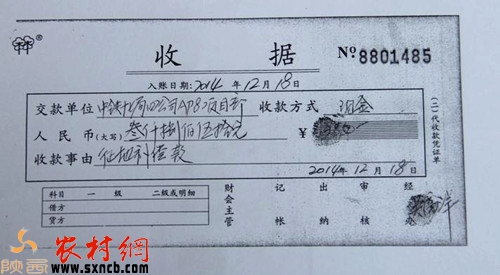 收 据
№ 8801485
入账日期:2014 年 12 月 18 日
交款单位 中铁十局四公司 项目部 收款方式 现金
人民币(大写) 叁仟捌佰伍拾元 ¥
收款事由 征地补偿款
2014 年 12 月 18 日
(二)代收款凭证单
科目 一 级 二级或明细
借方
贷方
财会主管 记帐 出纳 审核 经办
陕西
农村網
www.sxncb.com